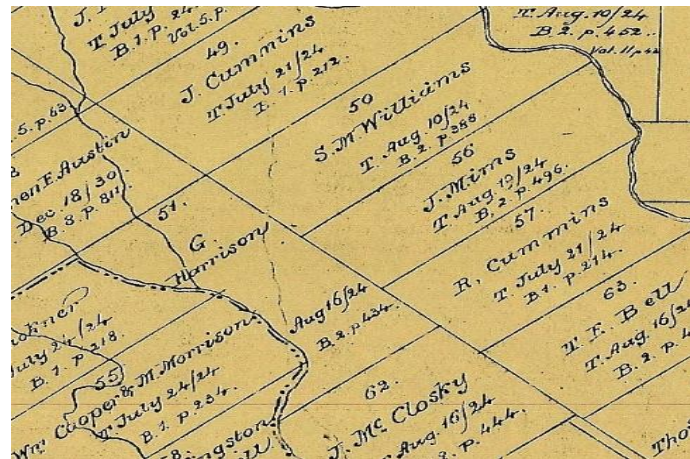 T July
B. 1. p. 24
Vol. 5. p.
49.
J. Cummins
T July 21/24
1. p. 212.
T. Aug. 10/24
B. 2. p. 452.
Vol. 11, p.
50
S. M. Williams
T. Aug. 10/24
B. 2. p. 388
56
J. Mims
T. Aug. 19/24
B. 2. p. 496.
57.
R. Cummins
T. July 21/24
B. 1. p. 214.
63.
T. F. Bell
T. Aug. 16/2
B. 2. p. 4
5. p. 53.
hen F. Austin
Dec 18/30
B. 8. p. 811.
51.
G
Harrison
Aug 16/24
B. 2. p. 434.
uly 24/24
B. 1. p. 218.
55
Wm Cooper & M. Morrison
T July 24/24
B. 1. p. 234.
ingston
62.
J. Mc Closky
Aug. 16/24
2. p. 444.
Tho